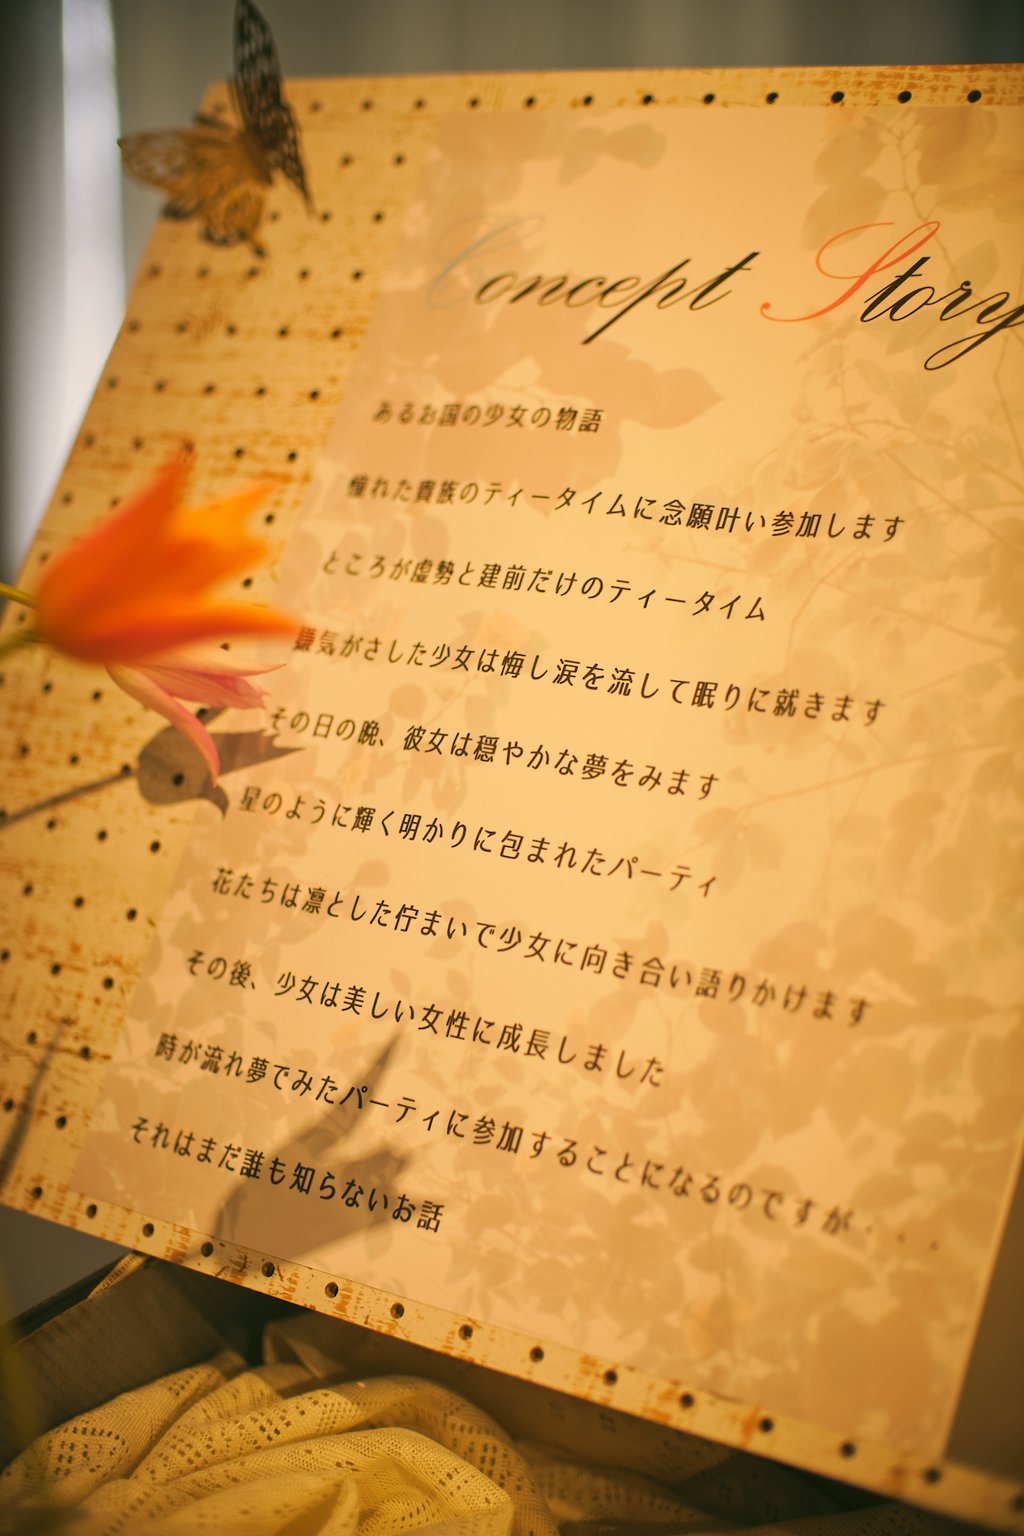 Concept Story
あるお国の少女の物語
憧れた貴族のティータイムに念願叶い参加します
ところが虚勢と建前だけのティータイム
嫌気がさした少女は悔し涙を流して眠りに就きます
その日の晩、彼女は穏やかな夢をみます
星のように輝く明かりに包まれたパーティ
花たちは凛とした佇まいで少女に向き合い語りかけます
その後、少女は美しい女性に成長しました
時が流れ夢でみたパーティに参加することになるのですが・・・
それはまだ誰も知らないお話